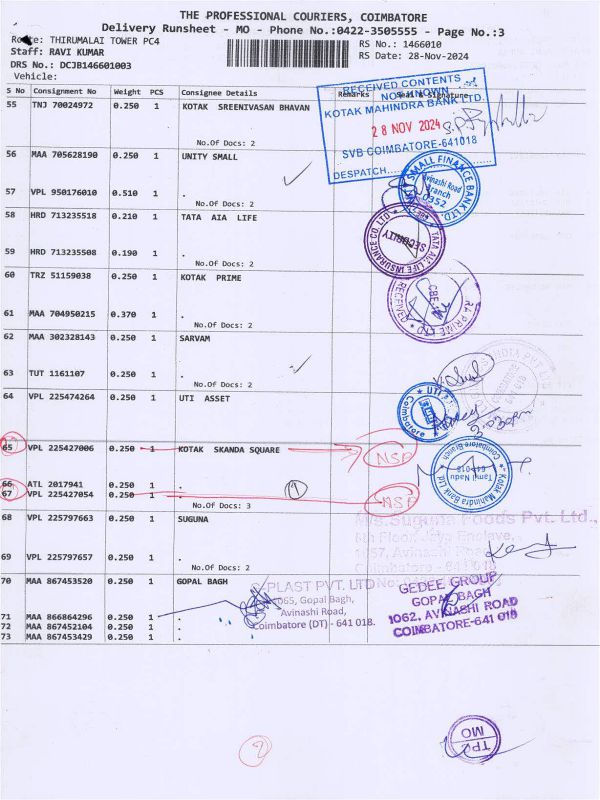 THE PROFESSIONAL COURIERS, COIMBATORE
Delivery Runsheet - MO - Phone No.:0422-3505555 - Page No.:3
Route: THIRUMALAI TOWER PC4
Staff: RAVI KUMAR
DRS No.: DCJB146601003
Vehicle:
RS No.: 1466010
RS Date: 28-Nov-2024
S No Consignment No Weight PCS Consignee Details Remarks Seal & Signature
55 TNJ 70024972 0.250 1 KOTAK SREENIVASAN BHAVAN
No.Of Docs: 2
RECEIVED CONTENTS
NOT KNOWN
KOTAK MAHINDRA BANK LTD.
28 NOV 2024
SVB COIMBATORE-641018
DESPATCH
56 MAA 705628190 0.250 1 UNITY SMALL
57 VPL 950176010 0.510 1 .
No.Of Docs: 2
SMALL FINANCE BANK LTD.
Avinashi Road
Branch
0352
58 HRD 713235518 0.210 1 TATA AIA LIFE
TATA AIA LIFE INSURANCE CO. LTD
SECURITY
59 HRD 713235508 0.190 1 .
No.Of Docs: 2
60 TRZ 51159038 0.250 1 KOTAK PRIME
RECEIVED
CBE
PRIME LTD
61 MAA 704950215 0.370 1 .
No.Of Docs: 2
62 MAA 302328143 0.250 1 SARVAM
63 TUT 1161107 0.250 1 .
No.Of Docs: 2
64 VPL 225474264 0.250 1 UTI ASSET
UTI
Coimbatore
3.030pm
65 VPL 225427006 0.250 1 KOTAK SKANDA SQUARE
NSP
Kotak Mahindra Bank Ltd
Coimbatore Branch
Tamil Nadu
641018
66 ATL 2017941 0.250 1 .
67 VPL 225427054 0.250 1 .
NSP
No.Of Docs: 3
68 VPL 225797663 0.250 1 SUGUNA
M/s.Suguna Foods Pvt. Ltd.,
Floor Jaya Enclave,
1057, Avinashi Road
Coimbatore
69 VPL 225797657 0.250 1 .
No.Of Docs: 2
70 MAA 867453520 0.250 1 GOPAL BAGH
PLAST PVT. LTD
1065, Gopal Bagh,
Avinashi Road,
Coimbatore (DT) - 641 018.
GEDEE GROUP
GOPAL BAGH
1062, AVINASHI ROAD
COIMBATORE-641 018
71 MAA 866864296 0.250 1 .
72 MAA 867452104 0.250 1 .
73 MAA 867453429 0.250 1 .
TPC
MO